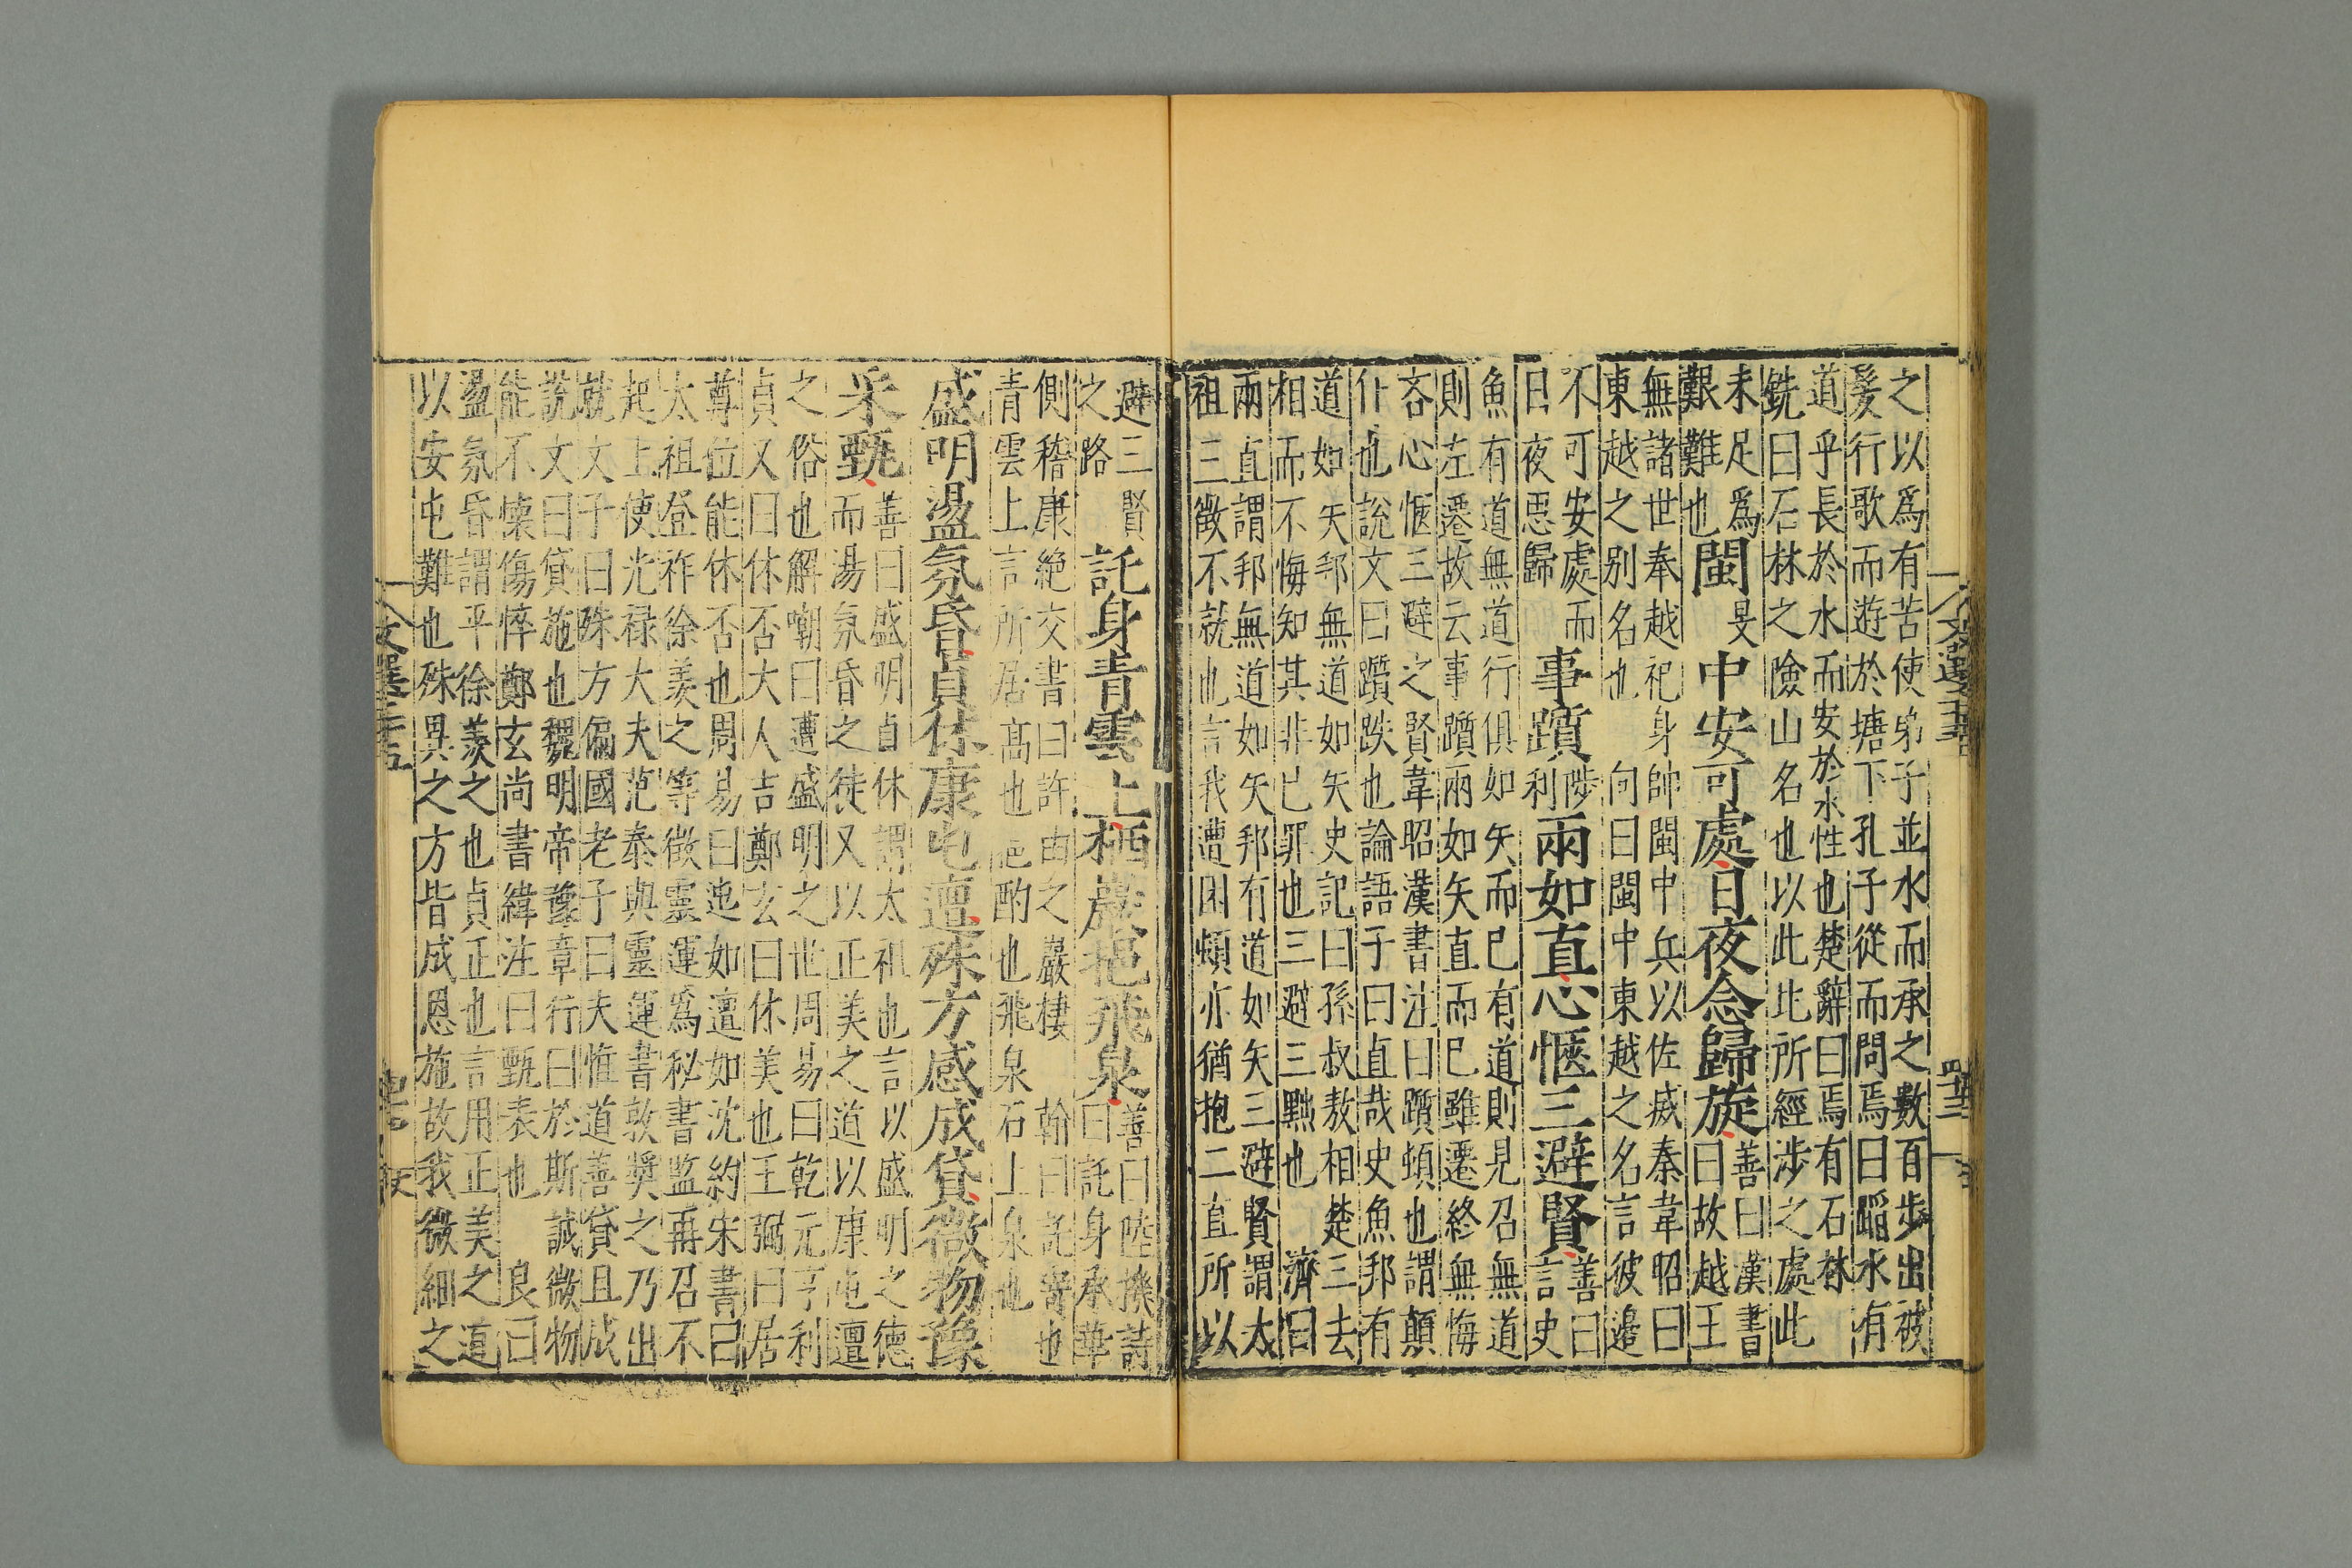 之以爲有苦使弟子並水而承之數百步出被
髮行歌而游於塘下孔子從而問焉曰蹈水有
道乎長於水而安於水性也楚辭曰焉有石林
銑曰石林之險山名也以此比所經涉之處此
未足爲
艱難也
閩旻中安可處日夜念歸旋
善曰漢書
曰故越王
無諸世奉越祀身帥閩中兵以佐滅秦韋昭曰
東越之别名也 向曰閩中東越之名言彼邉
不可安處而
日夜思歸
事躓陟利兩如直心愜三避賢
善曰
言史
魚有道無道行俱如矢而已有道則見召無道
則左遷故云事躓兩如矢直而已雖遷終無悔
吝心愜三避之賢韋昭漢書注曰躓頓也謂顛
仆也說文曰躓跌也論語子曰直哉史魚邦有
道如矢邦無道如矢史記曰孫叔敖相楚三去
相而不悔知其非已罪也三避三黜也 濟曰
兩直謂邦無道如矢邦有道如矢三避賢謂太
祖三徵不就也言我遭困頓亦猶抱二直所以
避三賢
之路
託身青雲上栖巖挹飛泉
善曰陸機詩
曰託身承華
側稽康絶交書曰許由之巖棲 翰曰託寄也
青雲上言所居髙也挹酌也飛泉石上泉也
盛明盪氛昏貞休康屯邅殊方感成貸微物豫
采甄
善曰盛明貞休謂太祖也言以盛明之德
而湯氛昏之徒又以正美之道以康屯邅
之俗也解嘲曰遭盛明之世周易曰乾元亨利
貞又曰休否大人吉鄭玄曰休美也王弼曰居
尊位能休否也周易曰迍如邅如沈約宋書曰
太祖登祚徐羨之等徵靈運爲秘書監再召不
起上使光禄大夫范泰與靈運書敦奬之乃出
就文子曰殊方偏國老子曰夫惟道善貸且成
說文曰貸施也魏明帝豫章行曰於斯誠微物
能不懷傷悴鄭玄尚書緯注曰甄表也 良曰
盪氛昏謂平徐羨之也貞正也言用正美之道
以安屯難也殊異之方皆成恩施故我微細之